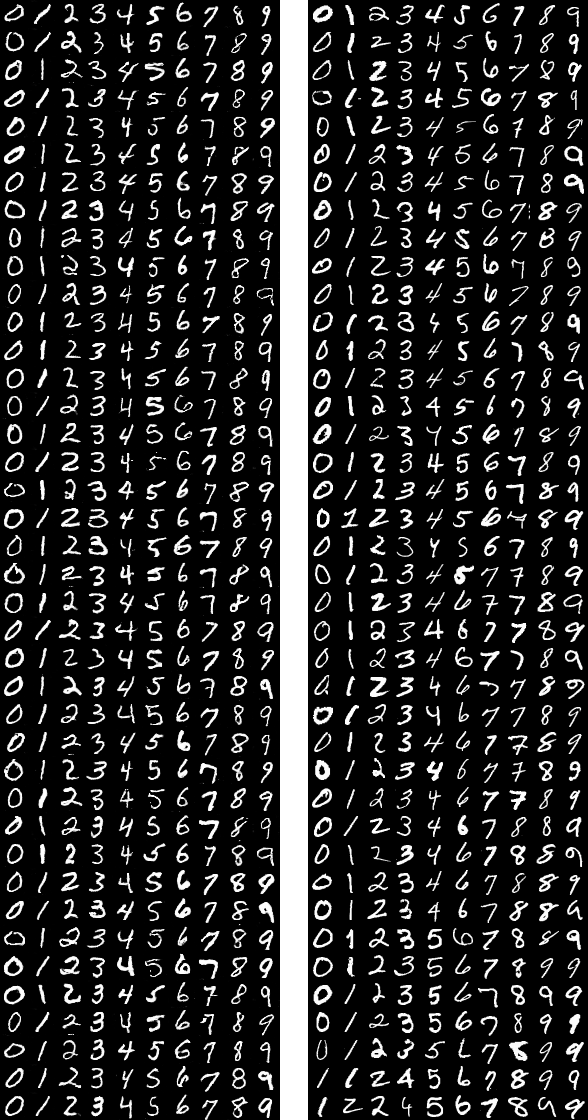 0 1 2 3 4 5 6 7 8 9
0 1 2 3 4 5 6 7 8 9
0 1 2 3 4 5 6 7 8 9
0 1 2 3 4 5 6 7 8 9
0 1 2 3 4 5 6 7 8 9
0 1 2 3 4 5 6 7 8 9
0 1 2 3 4 5 6 7 8 9
0 1 2 3 4 5 6 7 8 9
0 1 2 3 4 5 6 7 8 9
0 1 2 3 4 5 6 7 8 9
0 1 2 3 4 5 6 7 8 9
0 1 2 3 4 5 6 7 8 9
0 1 2 3 4 5 6 7 8 9
0 1 2 3 4 5 6 7 8 9
0 1 2 3 4 5 6 7 8 9
0 1 2 3 4 5 6 7 8 9
0 1 2 3 4 5 6 7 8 9
0 1 2 3 4 5 6 7 8 9
0 1 2 3 4 5 6 7 8 9
0 1 2 3 4 5 6 7 8 9
0 1 2 3 4 5 6 7 8 9
0 1 2 3 4 5 6 7 8 9
0 1 2 3 4 5 6 7 8 9
0 1 2 3 4 5 6 7 8 9
0 1 2 3 4 5 6 7 8 9
0 1 2 3 4 5 6 7 8 9
0 1 2 3 4 5 6 7 8 9
0 1 2 3 4 5 6 7 8 9
0 1 2 3 4 5 6 7 8 9
0 1 2 3 4 5 6 7 8 9
0 1 2 3 4 5 6 7 8 9
0 1 2 3 4 5 6 7 8 9
0 1 2 3 4 5 6 7 8 9
0 1 2 3 4 5 6 7 8 9
0 1 2 3 4 5 6 7 8 9
0 1 2 3 4 5 6 7 8 9
0 1 2 3 4 5 6 7 8 9
0 1 2 3 4 5 6 7 8 9
0 1 2 3 4 5 6 7 8 9
0 1 2 3 4 5 6 7 8 9
0 1 2 3 4 5 6 7 8 9
0 1 2 3 4 5 6 7 8 9
0 1 2 3 4 5 6 7 8 9
0 1 2 3 4 5 6 7 8 9
0 1 2 3 4 5 6 7 8 9
0 1 2 3 4 5 6 7 8 9
0 1 2 3 4 5 6 7 8 9
0 1 2 3 4 5 6 7 8 9
0 1 2 3 4 5 6 7 8 9
0 1 2 3 4 5 6 7 8 9
0 1 2 3 4 5 6 7 8 9
0 1 2 3 4 5 6 7 8 9
0 1 2 3 4 5 6 7 8 9
0 1 2 3 4 5 6 7 8 9
0 1 2 3 4 5 6 7 8 9
0 1 2 3 4 5 6 7 8 9
0 1 2 3 4 5 6 7 8 9
0 1 2 3 4 5 6 7 8 9
0 1 2 3 4 5 6 7 8 9
0 1 2 3 4 5 6 7 8 9
0 1 2 3 4 6 7 7 8 9
0 1 2 3 4 6 7 7 8 9
0 1 2 3 4 6 7 7 8 9
0 1 2 3 4 6 7 7 8 9
0 1 2 3 4 6 7 7 8 9
0 1 2 3 4 6 7 7 8 9
0 1 2 3 4 6 7 7 8 9
0 1 2 3 4 6 7 7 8 9
0 1 2 3 4 6 7 7 8 9
0 1 2 3 4 6 7 8 8 9
0 1 2 3 4 6 7 8 8 9
0 1 2 3 4 6 7 8 8 9
0 1 2 3 4 6 7 8 8 9
0 1 2 3 5 6 7 8 8 9
0 1 2 3 5 6 7 8 9 9
0 1 2 3 5 6 7 8 9 9
0 1 2 3 5 6 7 8 9 9
0 1 2 3 5 6 7 8 9 9
1 1 2 4 5 6 7 8 9 9
1 2 2 4 5 6 7 8 9 9